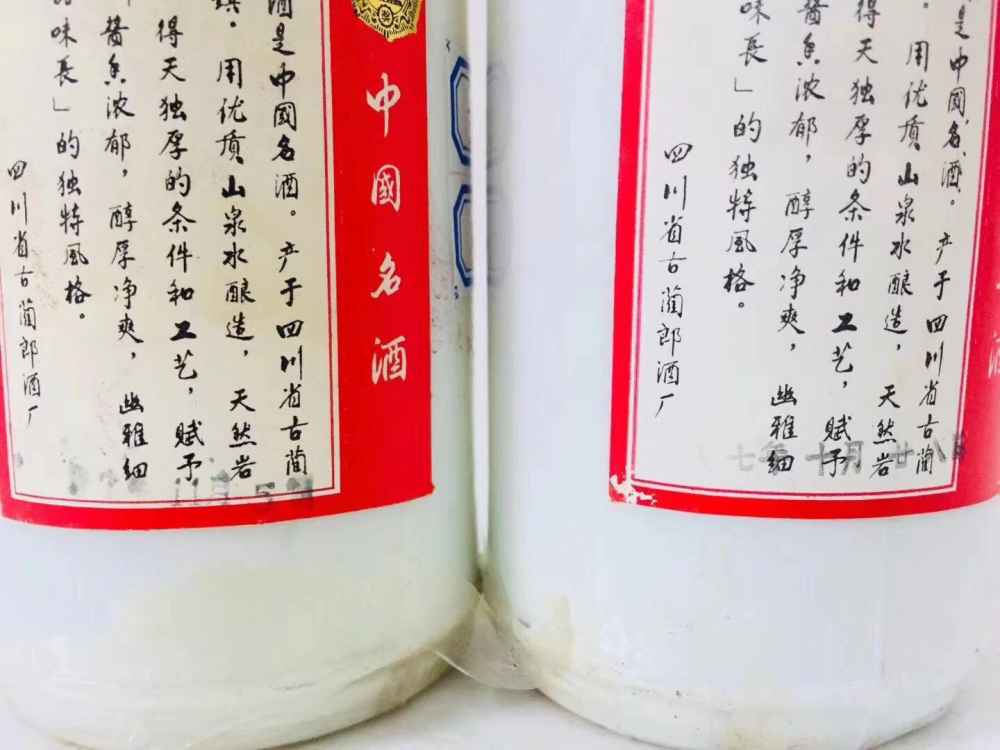 酒是中國名酒。产于四川省古蔺
镇。用优质山泉水酿造,天然岩
得天独厚的条件和工艺,赋予
酱香浓郁,醇厚净爽,幽雅细
味長」的独特風格。
四川省古蔺郎酒厂
中國名酒
11月5
是中國名酒。产于四川省古蔺
用优质山泉水酿造,天然岩
得天独厚的条件和工艺,赋予
酱香浓郁,醇厚净爽,幽雅细
味長」的独特風格。
四川省古蔺郎酒厂
酒
七年十月廿八日